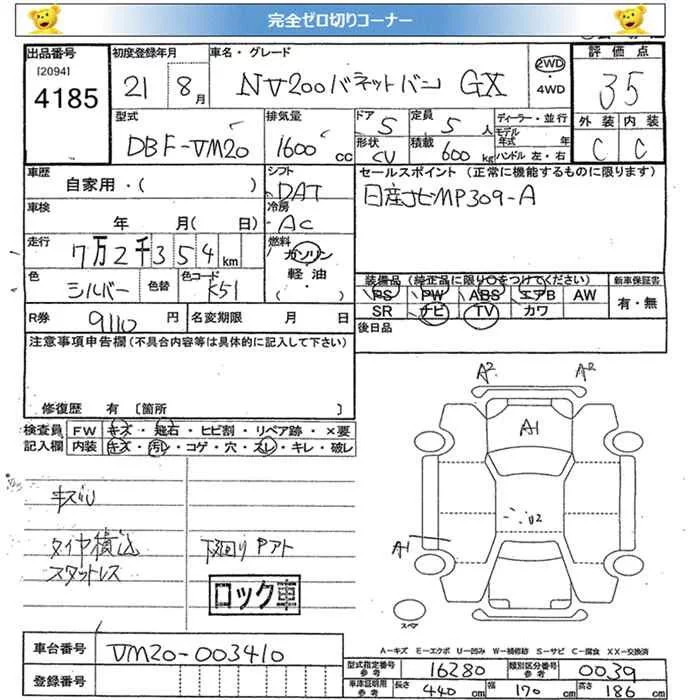 完全ゼロ切りコーナー
出品番号
[2094]
4185
初度登録年月
21 8月
車名・グレード
NV200バネットバン GX
2WD
4WD
評価点
35
外装 内装
C C
型式
DBF-VM20
排気量
1600cc
ドア
5
定員
5人
形状
CV
積載
600kg
ディーラー・並行
モデル
年式 年
ハンドル 左・右
車歴
自家用・( )
シフト
DAT
セールスポイント (正常に機能するものに限ります)
日産ナビMP309-A
車検
年 月( 日)
冷房
AC
走行
7万2千354km
燃料
ガソリン
軽油
( )
色
シルバー
色替
色コード
K51
装備品 (純正品に限り○をつけてください)
PS PW ABS エアB AW
SR ナビ TV カワ
新車保証書
有・無
R券
9110円
名変期限 月 日
後日品
注意事項申告欄(不具合内容等は具体的に記入して下さい)
修復歴 有 〔箇所 〕
検査員
記入欄
FW キズ・飛石・ヒビ割・リペア跡・×要
内装 キズ・汚レ・コゲ・穴・スレ・キレ・破レ
キズU
タイヤ積込
スタットレス
下回りPアト
ロック車
A2 A2
A1
U2
A1
スペア
A-キズ E-エクボ U-凹み W-補修跡 S-サビ C-腐食 XX-交換済
車台番号
VM20-003410
登録番号
型式指定番号
参考
16280
類別区分番号
参考
0039
車庫証明用
参考
長さ 440cm
幅 170cm
高さ 186cm